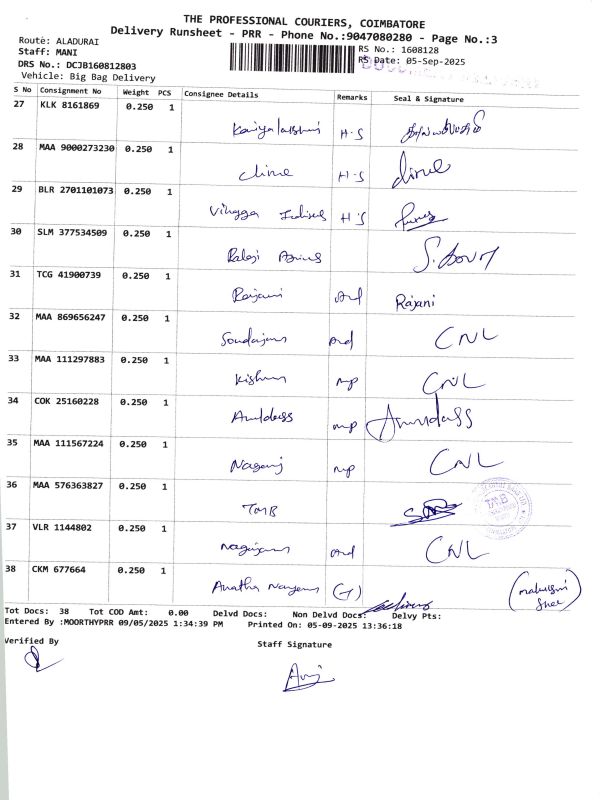 THE PROFESSIONAL COURIERS, COIMBATORE
Delivery Runsheet - PRR - Phone No.:9047080280 - Page No.:3
Route: ALADURAI
RS No.: 1608128
Staff: MANI
RS Date: 05-Sep-2025
DRS No.: DCJB160812803
Vehicle: Big Bag Delivery
S No Consignment No Weight PCS Consignee Details Remarks Seal & Signature
27 KLK 8161869 0.250 1 H-S
28 MAA 9000273230 0.250 1 H-S
29 BLR 2701101073 0.250 1 H-S
30 SLM 377534509 0.250 1
31 TCG 41900739 0.250 1 Rajani Rajani
32 MAA 869656247 0.250 1 CNL
33 MAA 111297883 0.250 1 Kishan mp CNL
34 COK 25160228 0.250 1 Aruldass mp
35 MAA 111567224 0.250 1 Nagaraj mp CNL
36 MAA 576363827 0.250 1 TMB
37 VLR 1144802 0.250 1 CNL
38 CKM 677664 0.250 1
Tot Docs: 38 Tot COD Amt: 0.00 Delvd Docs: Non Delvd Docs: Delvy Pts:
Entered By :MOORTHYPRR 09/05/2025 1:34:39 PM Printed On: 05-09-2025 13:36:18
Verified By
Staff Signature